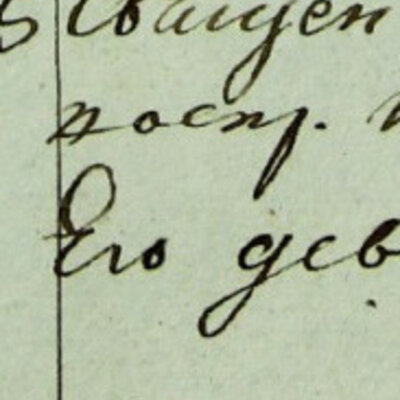 Священ
воспр.
Его дев